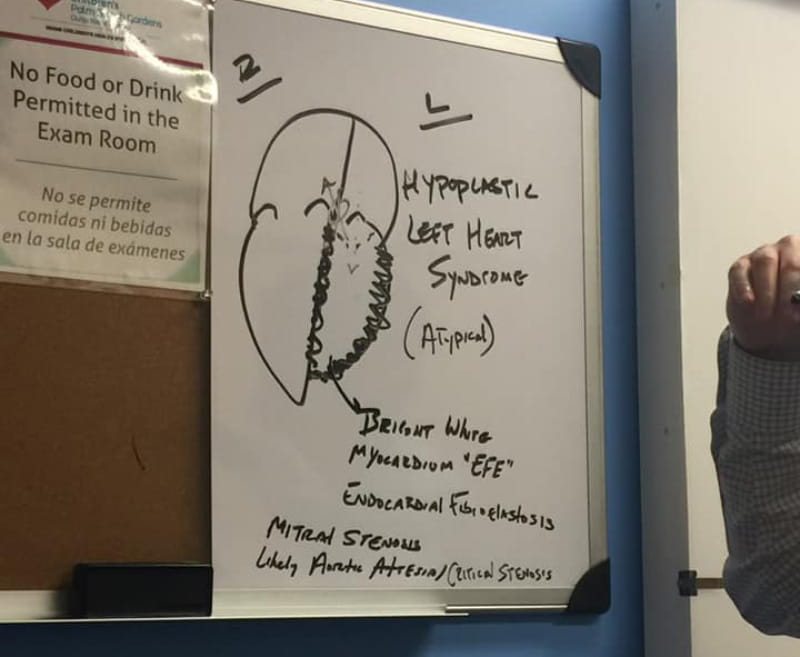 Children's
No Food or Drink
Permitted in the
Exam Room
No se permite
comidas ni bebidas
en la sala de exámenes
R
L
HYPOPLASTIC
LEFT HEART
SYNDROME
(ATYPICAL)
BRIGHT WHITE
MYOCARDIUM "EFE"
ENDOCARDIAL FIBROELASTOSIS
MITRAL STENOSIS
Likely AORTIC ATRESIA/CRITICAL STENOSIS